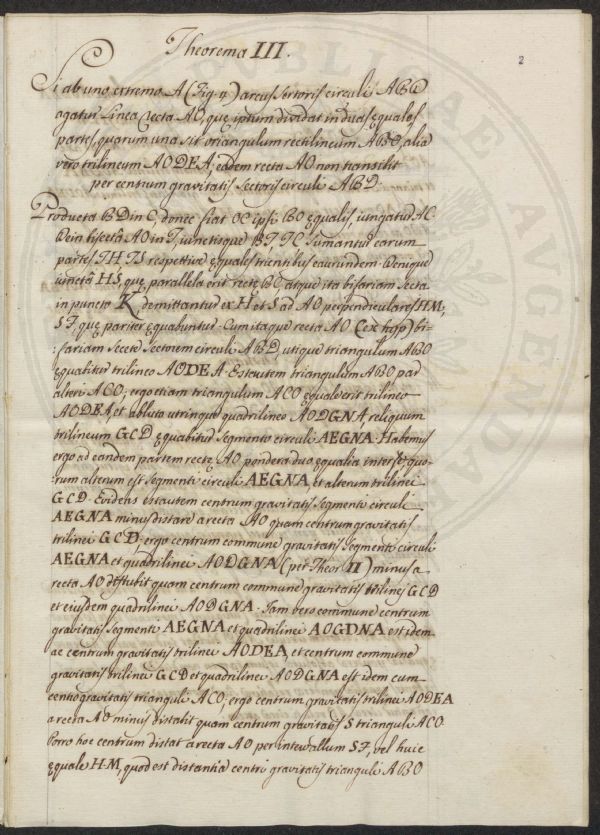 Theorema III.
2
Si ab uno extremo A (Fig. 4) arcus sectoris circuli ABD
agatur Linea recta AO, quę ipsum dividat in duas ęquales
partes, quarum una sit triangulum rectilineum ABO, alia
vero trilineum AODEA; eadem recta AO non transibit
per centrum gravitatis sectoris circuli ABD.
Producta BD in C, donec fiat OC ipsi BO ęqualis, iungatur AC.
Dein bisectâ AO in T, iunctisque BT, TC sumantur earum
partes TH TS respectivę ęquales trientibus earundem. Denique
iunctâ HS, quę parallela erit rectę BC, atque ita bifariam secta
in puncto K demittantur ex H et S ad AO perpendiculares HM,
SF, quę pariter ęquabuntur. Cum itaque recta AO (ex hyp) bi-
:fariam secet sectorem circuli ABD, utique triangulum ABO
ęquabitur trilineo AODEA. Est autem triangulum ABO par
alteri ACO; ergo etiam triangulum ACO ęquale erit trilineo
AODEA, et ablato utrinque quadrilineo AODGNA reliquum
trilineum GCD ęquabitur segmento circuli AEGNA. Habemus
ergo ad eandem partem rectę AO pondera duo ęqualia inter se, quo-
:rum alterum est segmenti circuli AEGNA, et alterum trilinei
GCD. Evidens est autem centrum gravitatis segmenti circuli
AEGNA minus distare a recta AO quam centrum gravitatis
trilinei GCD; ergo centrum commune gravitatis segmenti circuli
AEGNA et quadrilinei AODGNA (per Theor II) minus a
recta AO distabit quam centrum commune gravitatis trilinei GCD
et eiusdem quadrilinei AODGNA. Iam vero commune centrum
gravitatis segmenti AEGNA et quadrilinei AOGDNA est idem
ac centrum gravitatis trilinei AODEA, et centrum commune
gravitatis trilinei GCD et quadrilinei AODGNA est idem cum
centro gravitatis trianguli ACO; ergo centrum gravitatis trilinei AODEA
a recta AO minus distabit quam centrum gravitatis S trianguli ACO.
Porro hoc centrum distat a recta AO per intervallum SF, vel huic
ęquale HM, quod est distantia centri gravitatis trianguli ABO